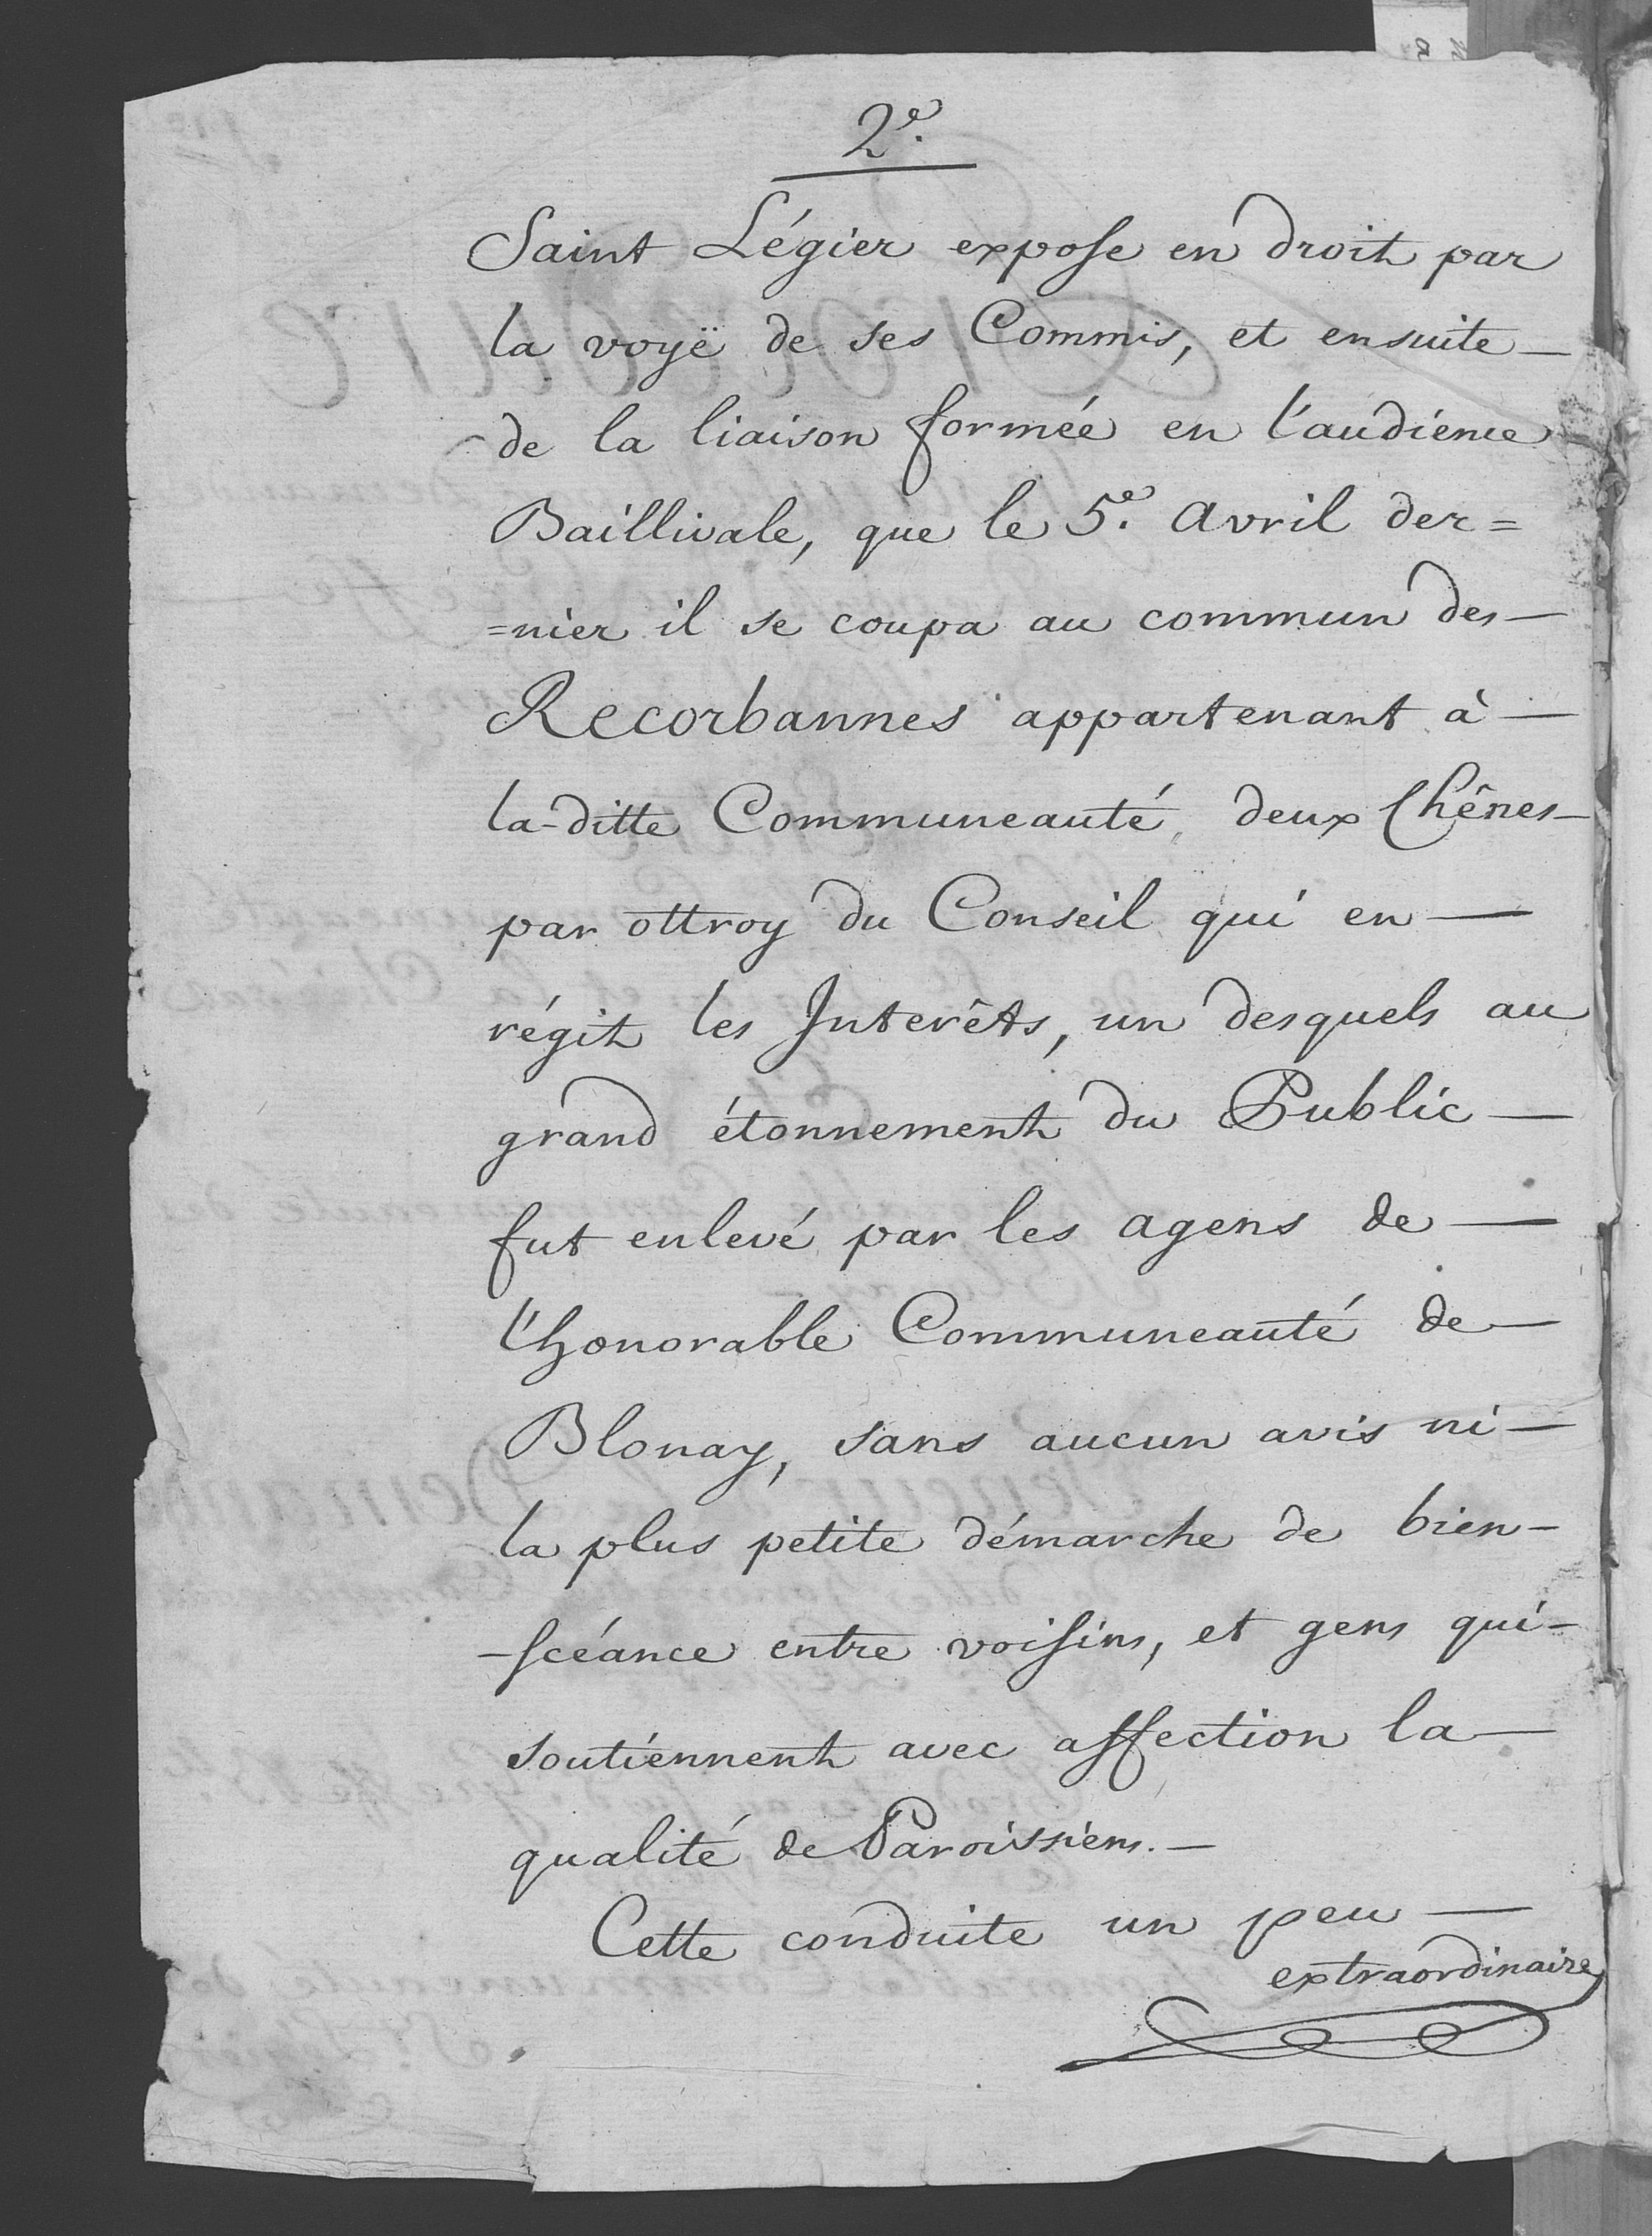 2.e
Saint Légier expose en droit par
la voyë de ses Commis, et ensuite —
de la liaison formée en l'audience
Baillivale, que le 5.e Avril der=
=nier il se coupa au commun des —
Recorbannes appartenant à —
la-ditte Communeauté, deux Chênes —
par ottroy du Conseil qui en —
régit les Interêts, un desquels au
grand étonnement du Public —
fut enlevé par les agens de —
l'honorable Communeauté de —
Blonay, sans aucun avis ni —
la plus petite démarche de bien-
-scéance entre voisins, et gens qui —
soutiennent avec affection la —
qualité de Paroissiens. —
Cette conduite un peu —
extraordinaire